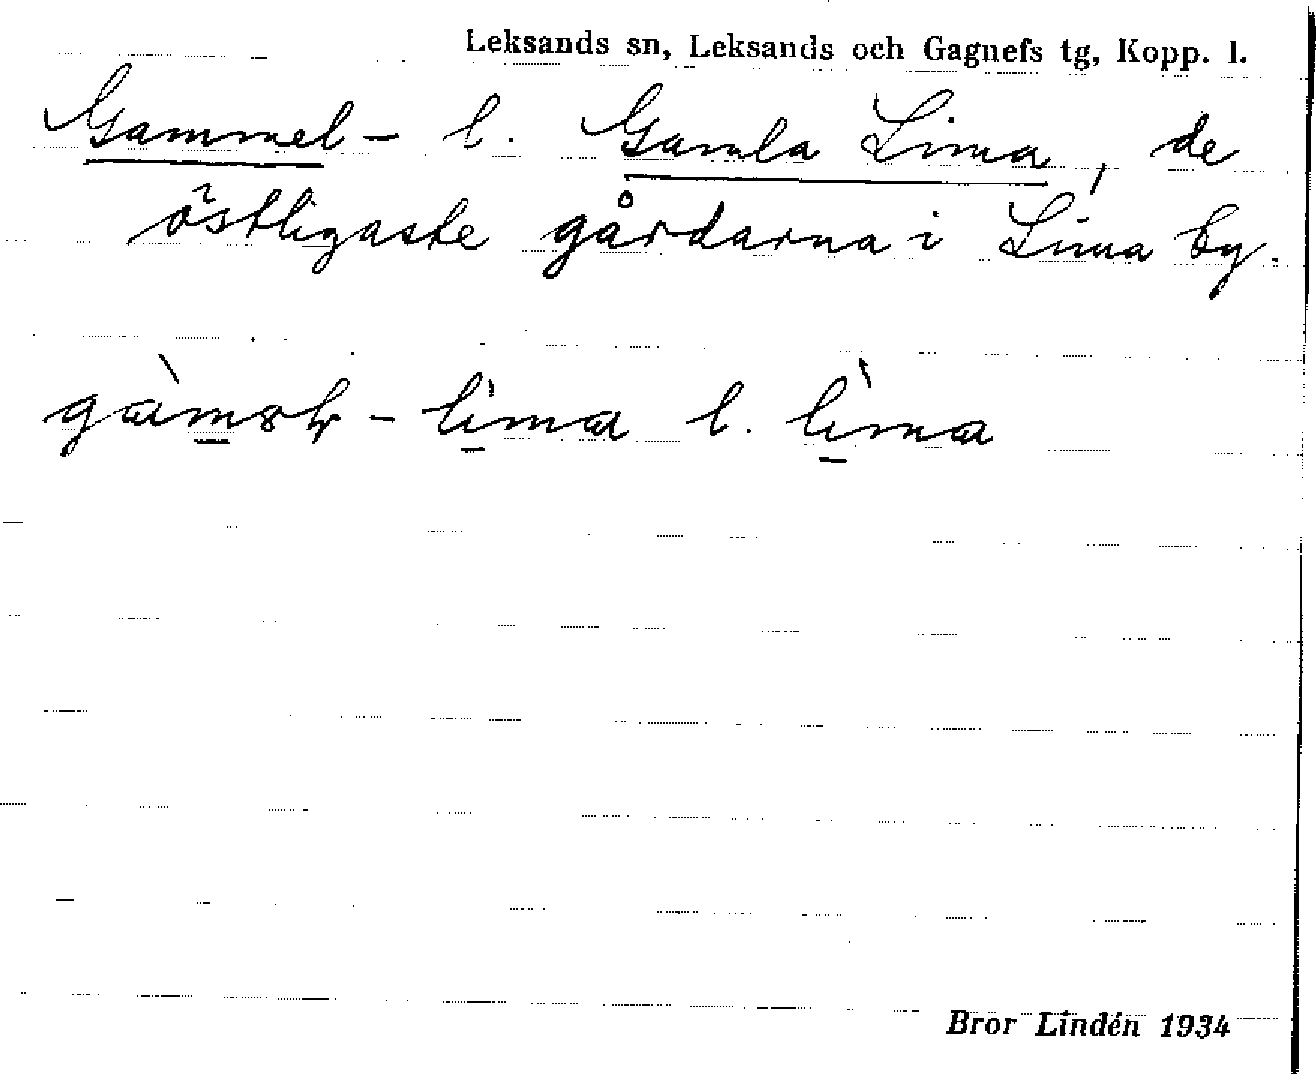 Leksands sn, Leksands och Gagnefs tg, Kopp. l.
Gammel- l. Gamla Lima, de
östligaste gårdarna i Lima by.
- lima l. lìma
Bror Lindén 1934